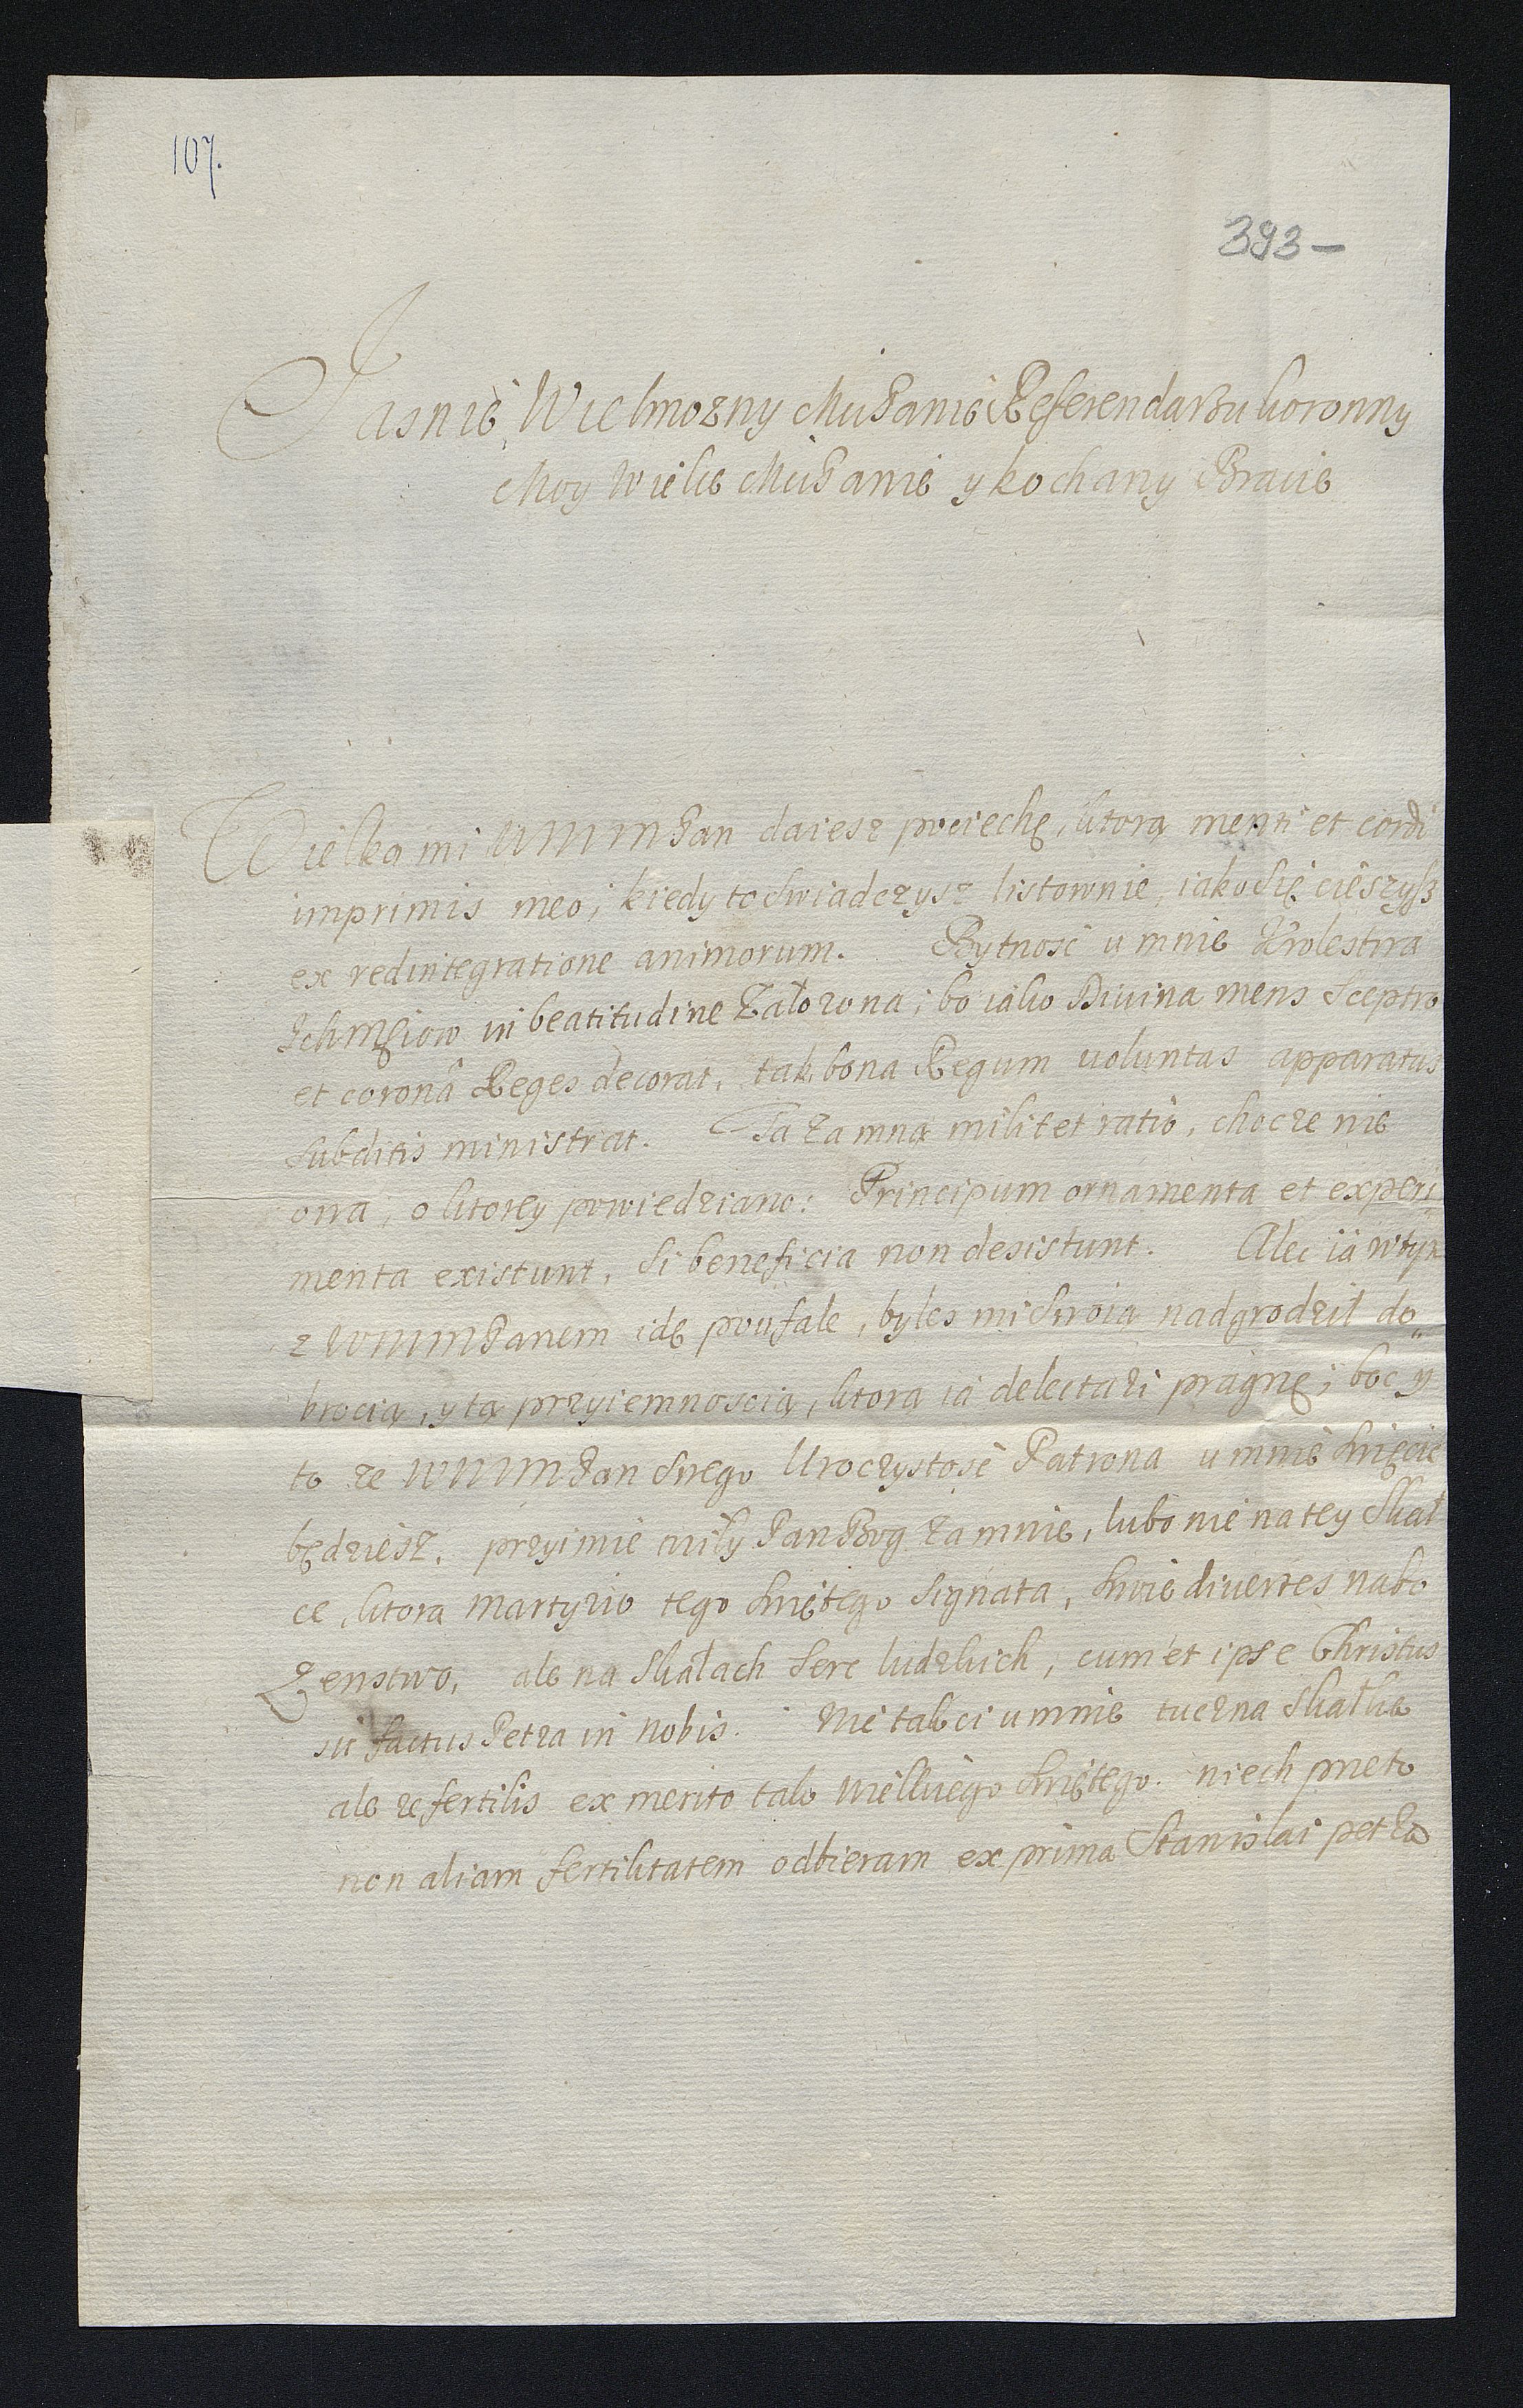 107.
393-
Jasnie Wielmozny Mci Panie Referendarzu koronny
Moy Wielce Mci Panie y kochany Bracie
Wielką mi WMMPan daiesz pociechę, ktorą menti et cordi
imprimis meo, kiedy to swiadczysz listownie, iako się cieszysz
ex redintegratione animorum. Bytnosć u mnie Krolestwa
Ichmciow in beatitudine założona; bo iako Diuina mens Sceptro
et coronâ Reges decorat, tak bona Regum uoluntas apparatus
subditis ministrat. Ta za mną militet ratio, chocze nie
ona, o ktorey powiedziano: Principum ornamenta et experi„
menta existunt, si beneficia non desistunt. Alec ia w tym
z WMMPanem idę poufale, byles mi swoią nadgrodził do„
brocią, y tą przyiemnoscią, ktora ia delectari pragnę; boc y
to ze WMMPan swego Uroczystosc Patrona u mnie swięcic
będziesz, przyimie miły Pan Bog za mnie, lubo nie na tey skał
ce, ktora martyrio tego swiętego signata, swoie diuertes nabo
zenstwo, ale na skałach serc ludzkich, cum et ipse Christus
sit factus Petra in nobis. Nie takci u mnie tuczna skałka
ale ze fertilis ex merito tak wielkiego swiętego. niech przeto
non aliam fertilitatem odbieram ex prima Stanislai petra